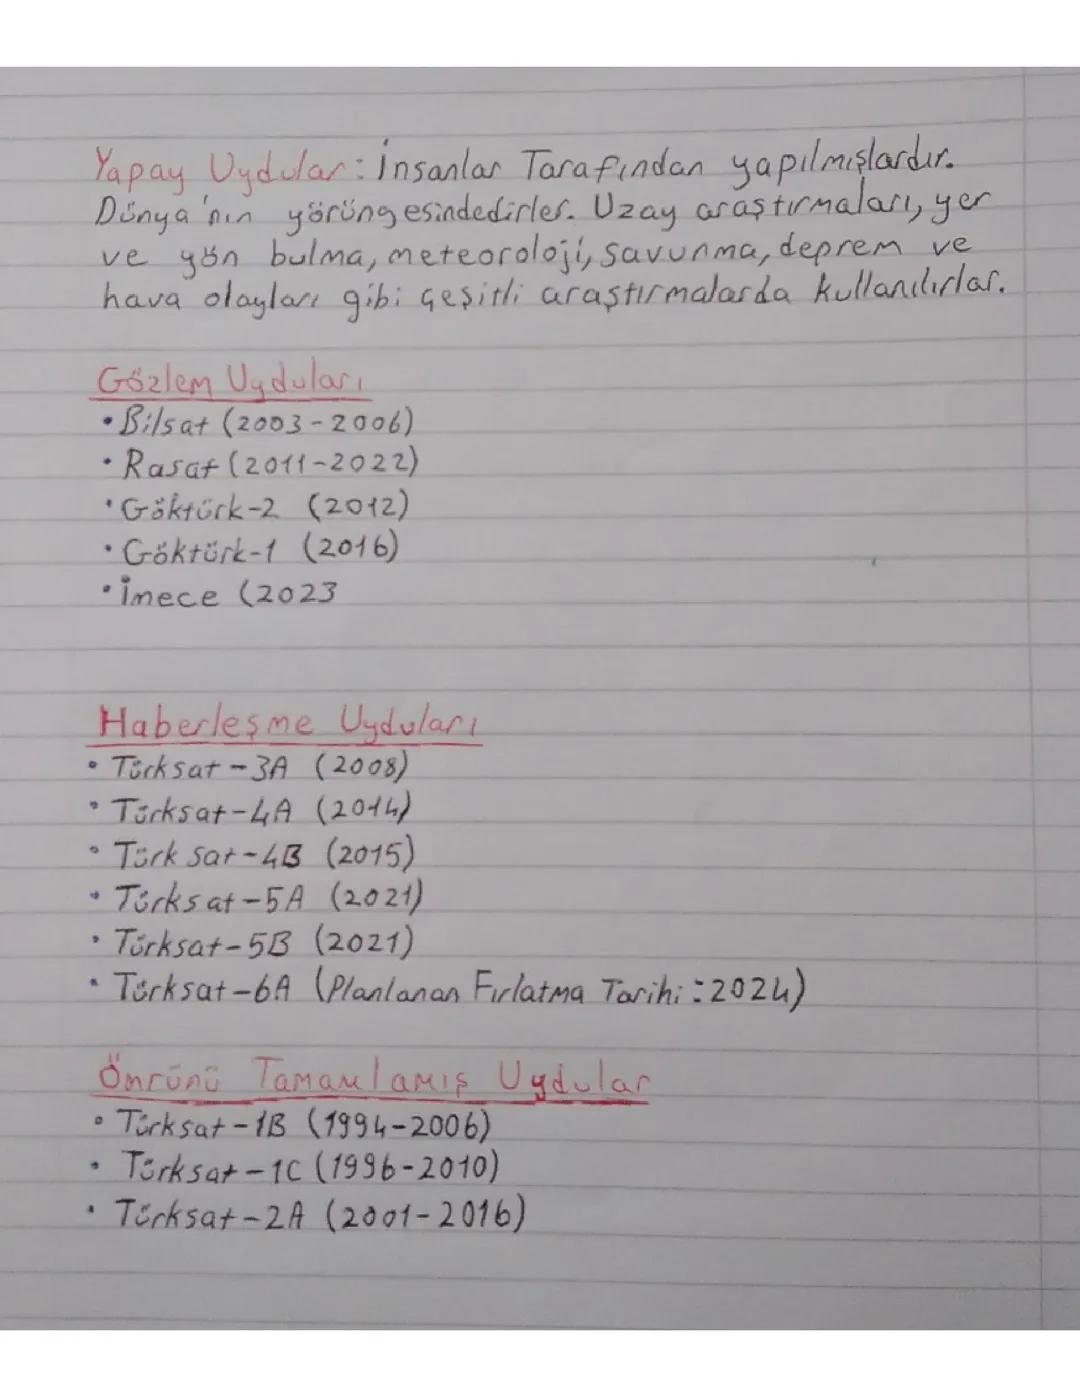 Yapay Uydular: İnsanlar Tarafından yapılmışlardır.
Dünya'nın yörüngesindedirler. Uzay araştırmaları, yer
ve yön bulma, meteoroloji, savunma, deprem ve
hava olayları gibi çeşitli araştırmalarda kullanılırlar.
Gözlem Uyduları
• Bilsat (2003-2006)
• Rasat (2011-2022)
• Göktürk-2 (2012)
• Göktürk-1 (2016)
• İmece (2023
Haberleşme Uyduları
• Türksat-3A (2008)
• Türksat-4A (2014)
• Türksat-4B (2015)
• Türksat-5A (2021)
• Türksat-5B (2021)
• Türksat-6A (Planlanan Fırlatma Tarihi: 2024)
Ömrünü Tamamlamış Uydular
• Türksat-1B (1994-2006)
• Türksat-1C (1996-2010)
• Türksat-2A (2001-2016)